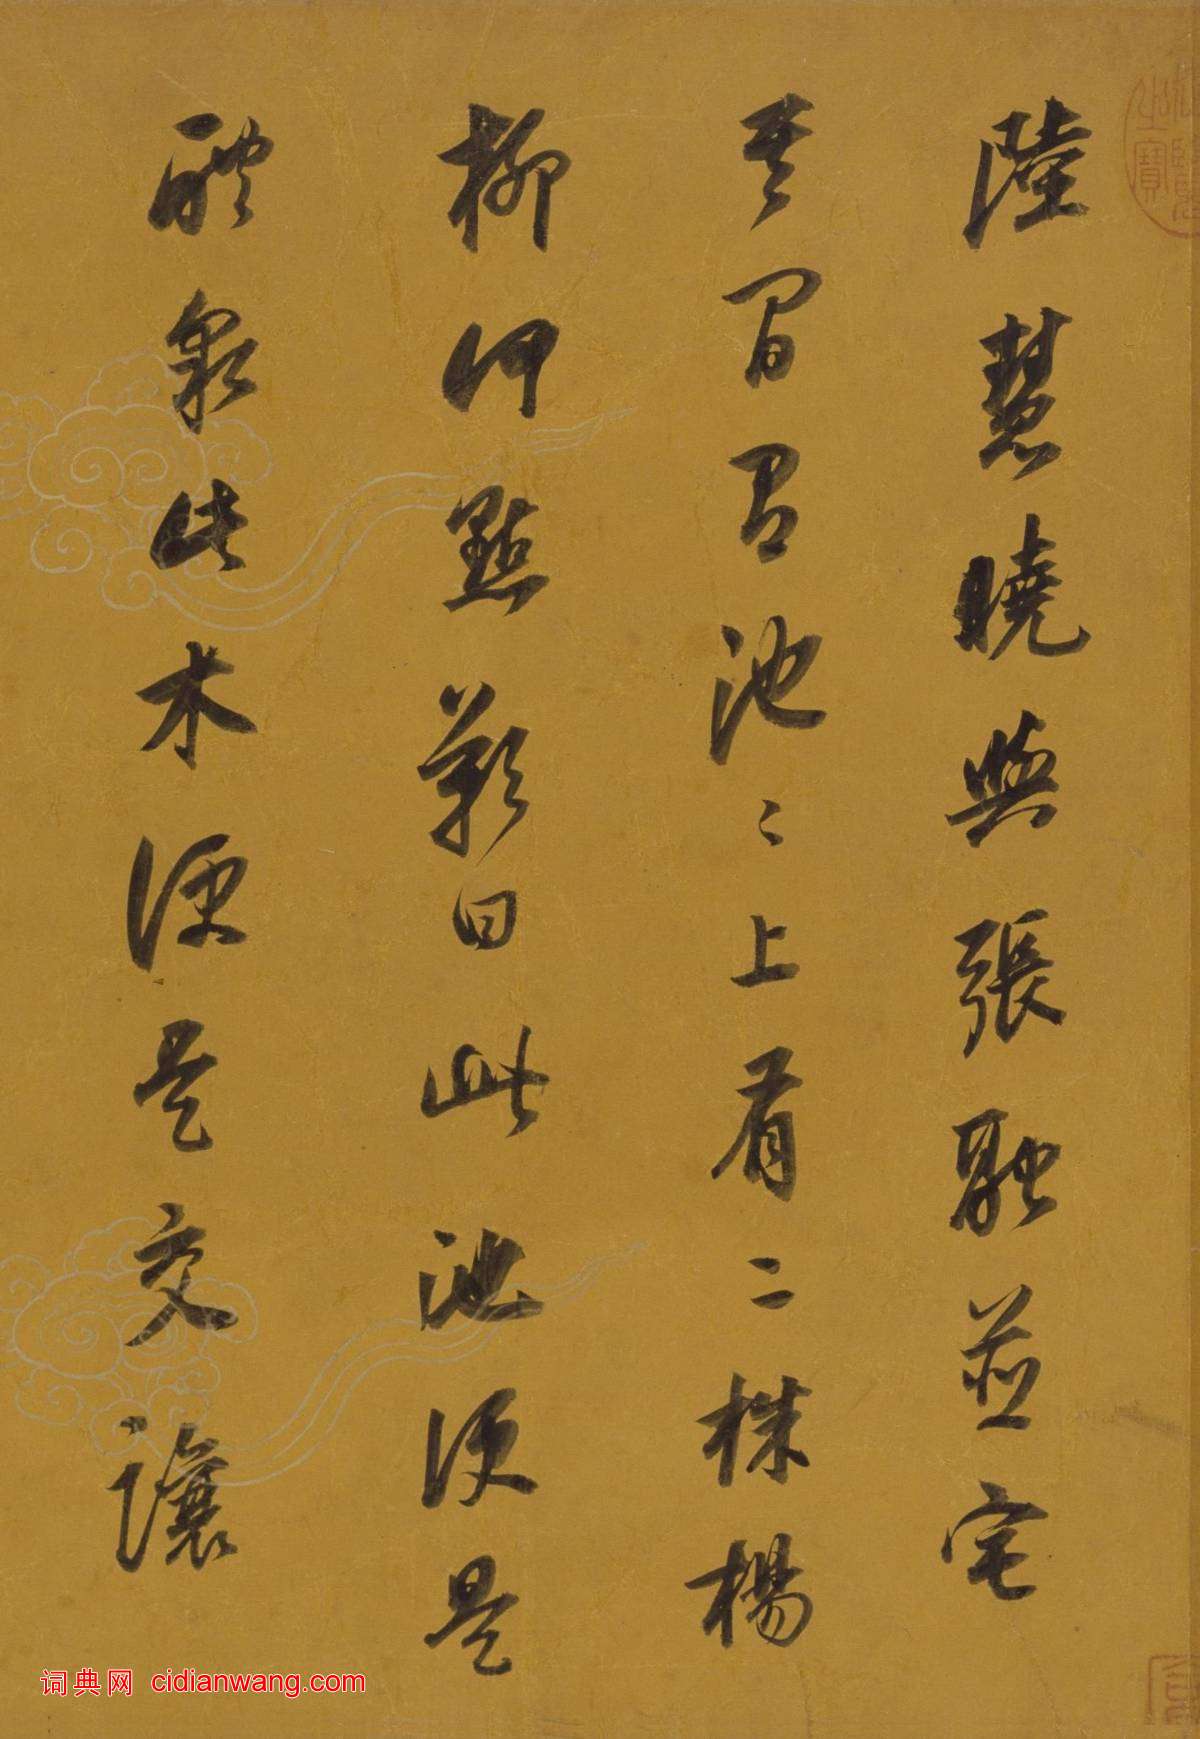 陸慧曉與張融並宅
其間有池〻上有二株楊
柳何點歎曰此池便是
醴泉此木便是交讓
词典网 cidianwang.com